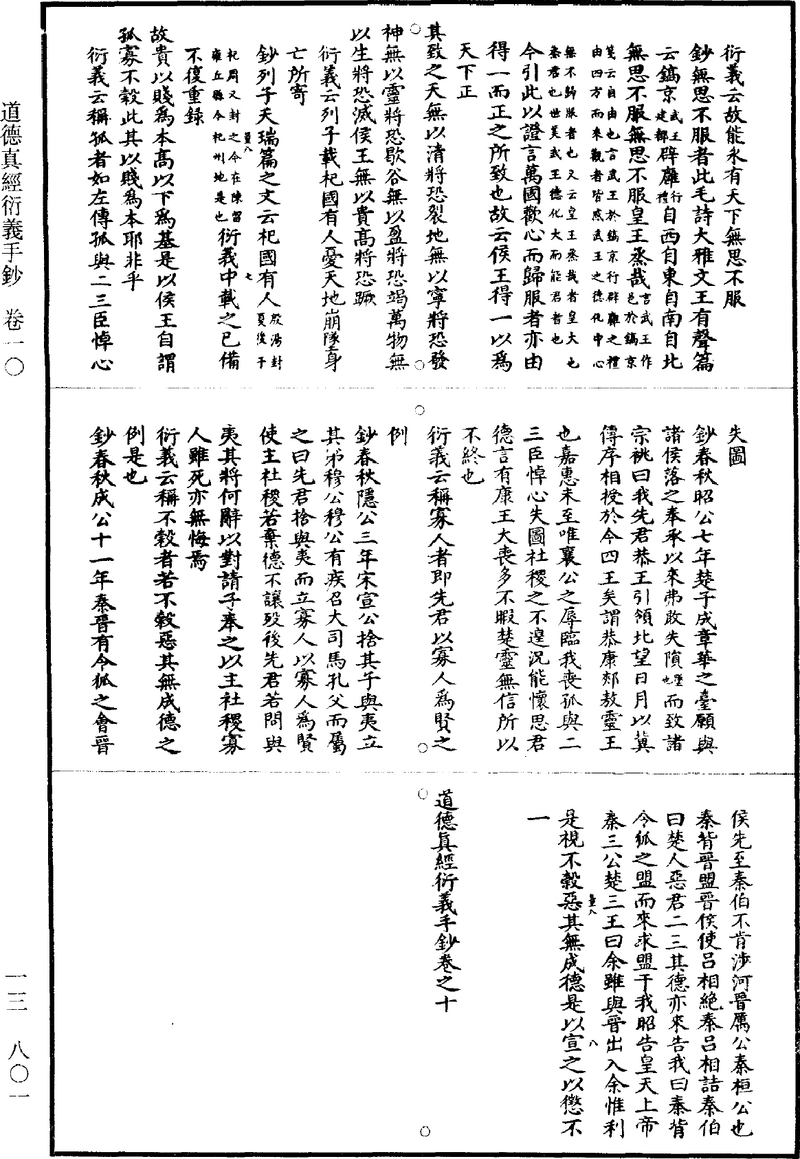 衍義云故能永有天下無思不服
鈔無思不服者此毛詩大雅文王有聲篇
云鎬京武王建都辟廱行禮自西自東自南自北
無思不服無思不服皇王烝哉言武王作邑於鎬京
箋云自由也言武王於鎬京行辟廱之禮
由四方而來觀者皆感武王之德化中心
無不歸服者也又云皇王烝哉者皇大也
烝君也世美武王德化大而能君者也
今引此以證言萬國歡心而歸服者亦由
得一而正之所致也故云侯王得一以為
天下正
其致之天無以清將恐裂地無以寧將恐發
神無以靈將恐歇谷無以盈將恐竭萬物無
以生將恐滅侯王無以貴高將恐蹶
衍義云列子載杞國有人憂天地崩墜身
亡所寄
鈔列子天瑞篇之文云杞國有人殷湯封夏後于
杞周又封之今在陳留
雍丘縣今杞州地是也衍義中載之已備
不復重録
故貴以賤為本高以下為基是以侯王自謂
孤寡不穀此其以賤為本耶非乎
衍義云稱孤者如左傳孤與二三臣悼心
失圖
鈔春秋昭公七年楚子成章華之臺願與
諸侯落之奉承以來弗敢失隕墜也而致諸
宗祧曰我先君恭王引領北望日月以冀
傳序相授於今四王矣謂恭康郟敖靈王
也嘉惠未至唯襄公之辱臨我喪孤與二
三臣悼心失圖社稷之不遑況能懷思君
德言有康王大喪多不暇楚靈無信所以
不終也
衍義云稱寡人者即先君以寡人為賢之
例
鈔春秋隱公三年宋宣公捨其子與夷立
其弟穆公穆公有疾召大司馬孔父而屬
之曰先君捨與夷而立寡人以寡人為賢
使主社稷若棄德不讓歿後先君若問與
夷其將何辭以對請子奉之以主社稷寡
人雖死亦無悔焉
衍義云稱不穀者若不穀惡其無成德之
例是也
鈔春秋成公十一年秦晉有令狐之會晉
侯先至秦伯不肯涉河晉厲公秦桓公也
秦背晉盟晉侯使呂相絶秦呂相詰秦伯
曰楚人惡君二三其德亦來告我曰秦背
令狐之盟而來求盟于我昭告皇天上帝
秦三公楚三王曰余雖與晉出入余惟利
是視不穀惡其無成德是以宣之以懲不
一
道德真經衍義手鈔卷之十
道德真經衍義手鈔 卷一〇
一三 八〇一